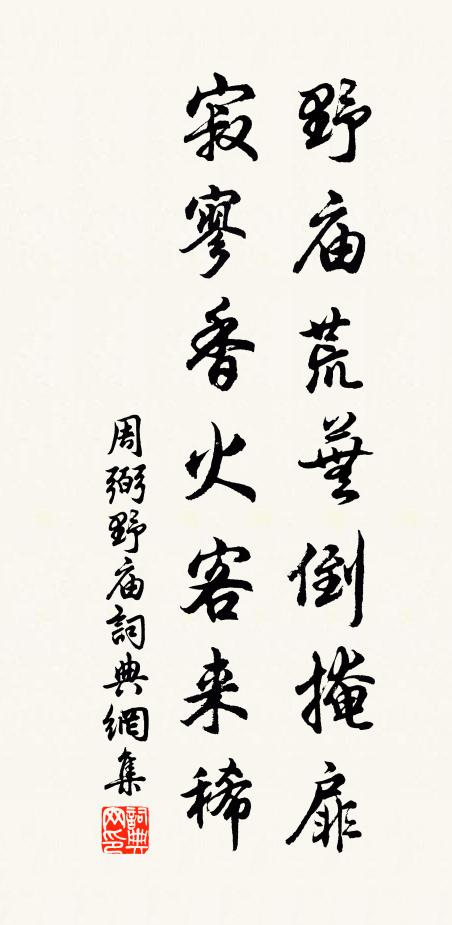 野庙荒蕪倒掩扉
寂寥香火客来稀
周弼野庙詞典網集
詞典网印